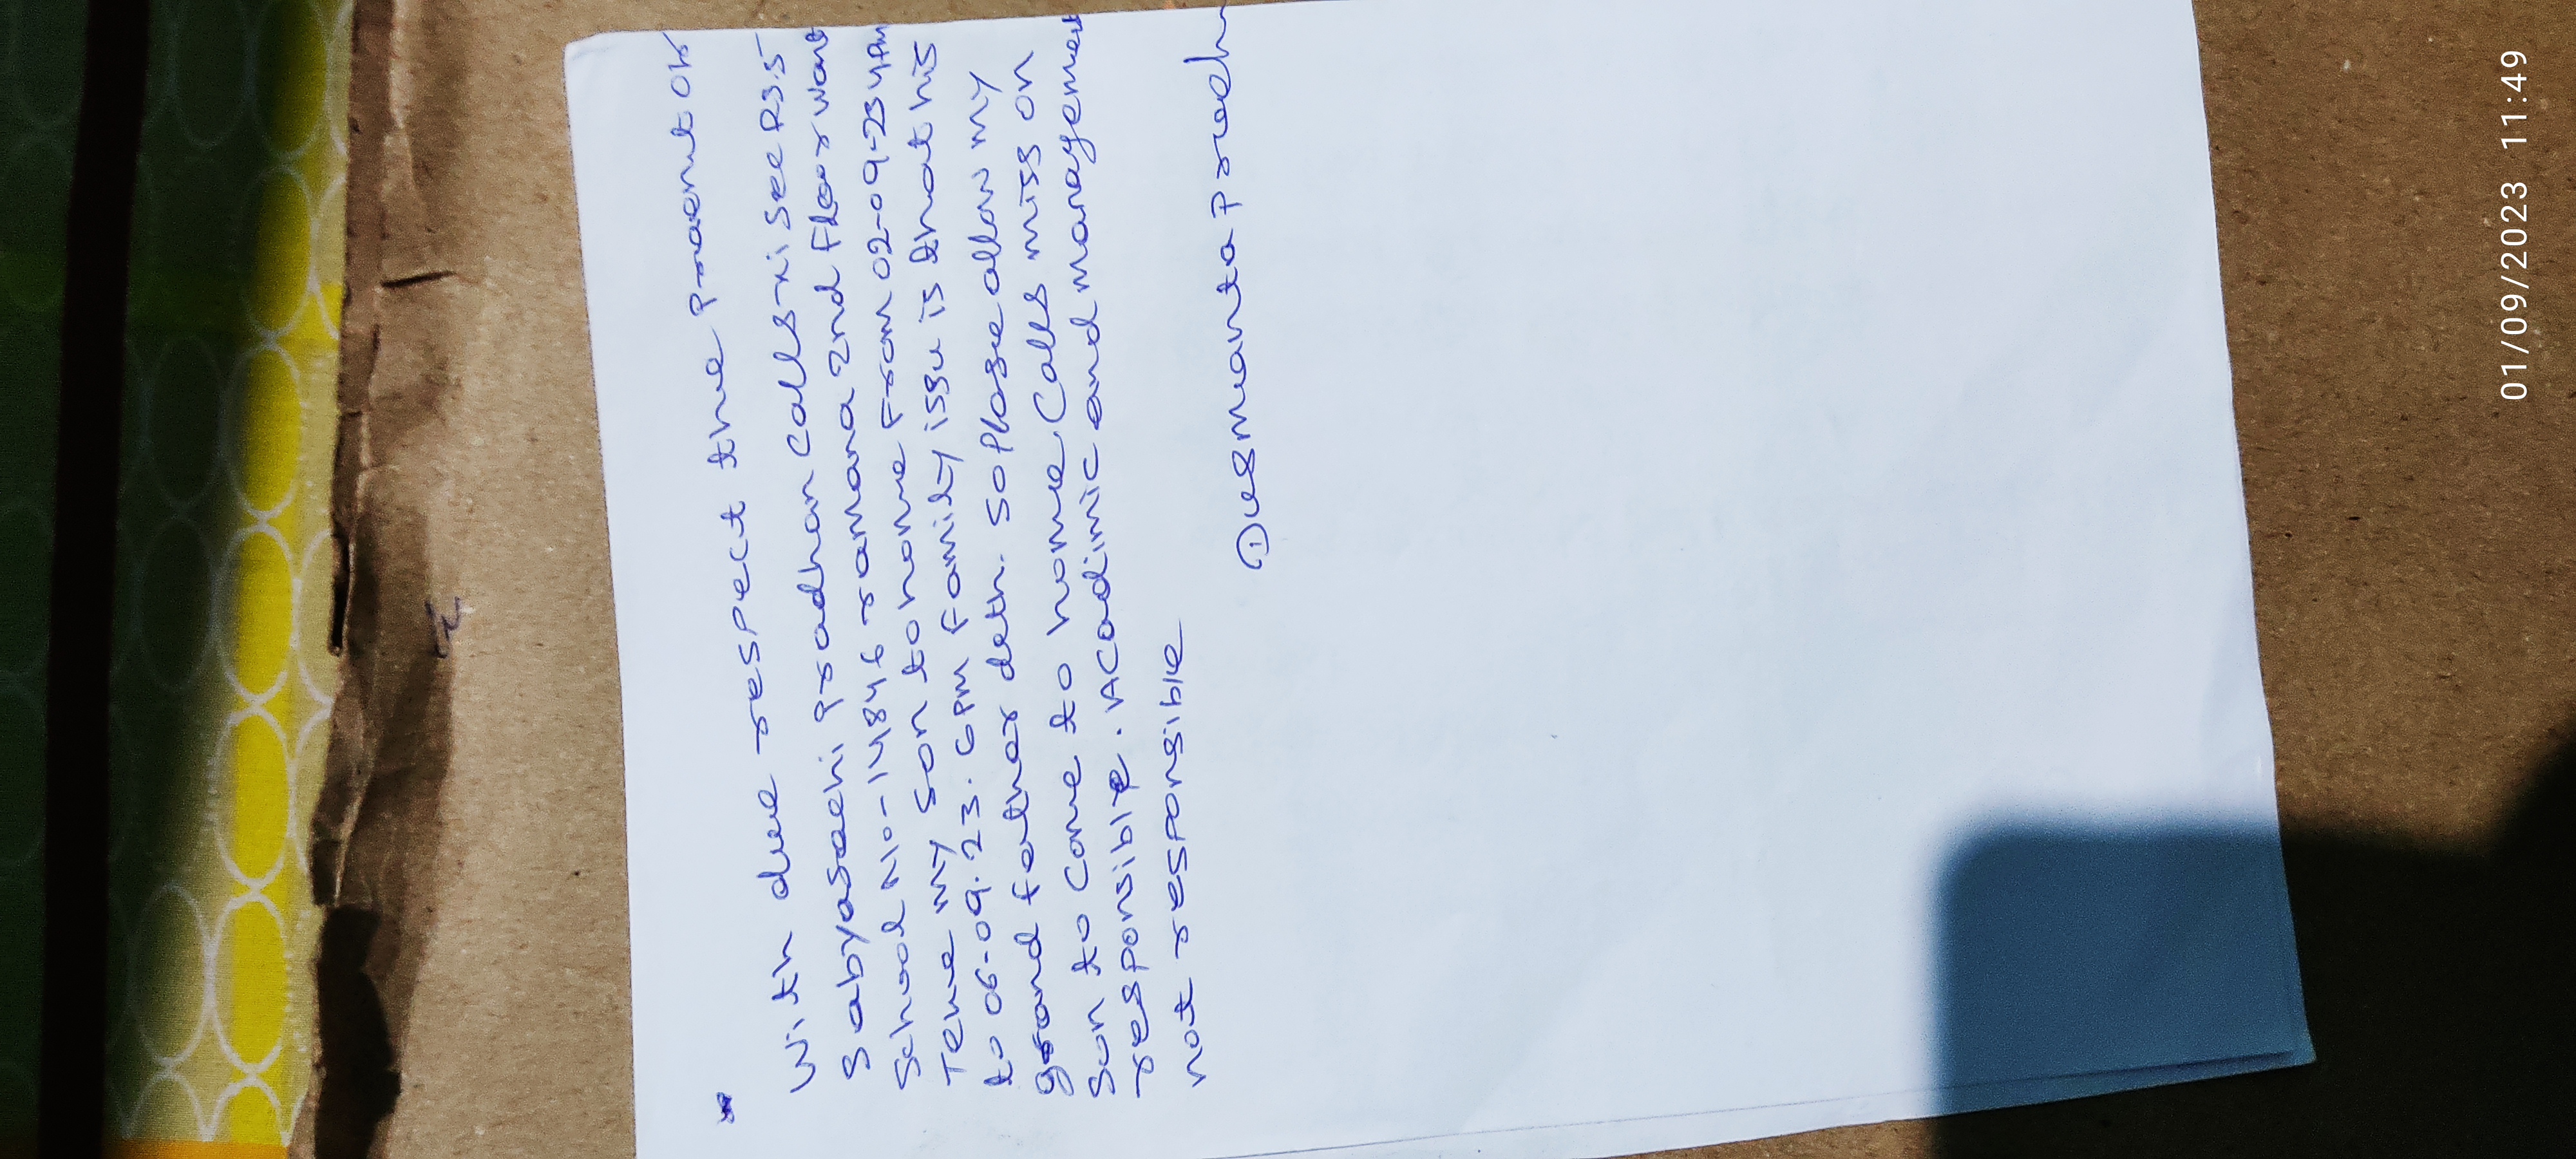 With due respect the Praent or
Sabyaseehi Pradhan Calls xi see Rs.5
School No - 14846 ramana 2nd Floor want
Teke my Son to home From 02-09-23 4PM
to 06-09.23. 6PM family issu is that his
grand father deth. So Please allow my
Sun to Come to home Calls miss on
responsible. Acadimic and management
not responsible
Dusmanta Prodh
01/09/2023 11:49